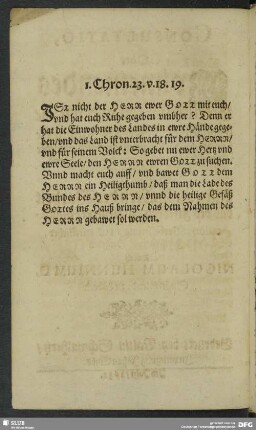 1. Chron. 23. v. 18. 19.
ISt nicht der HERR ewer GOTT mit euch/
vnd hat euch Ruhe gegeben vmbher? Denn er
hat die Einwohner des Landes in ewre Hände gege-
ben/ vnd das Land ist vnterbracht für dem HERRN/
vnd für seinem Volck: So gebet nu ewer Hertz vnd
ewre Seele/ den HERRN ewren GOTT zu suchen.
Vnnd macht euch auff/ vnd bawet GOTT dem
HERRN ein Heiligthumb/ daß man die Lade des
Bundes des HERRN/ vnnd die heilige Gefäß
GOttes ins Hauß bringe/ das dem Nahmen des
HERRN gebawet sol werden.
SLUB
DFG